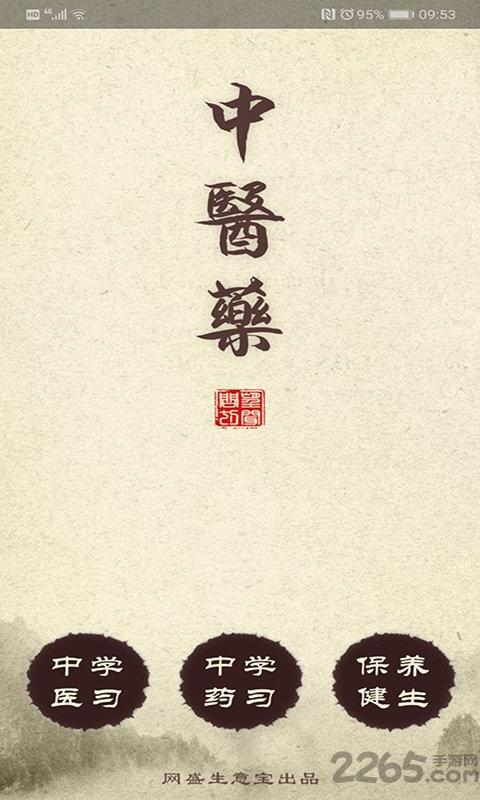 HD 4G 95% 09:53
中
醫
藥
望聞
問切
中学
医习
中学
药习
保养
健生
网盛生意宝出品
2265.com
手游网